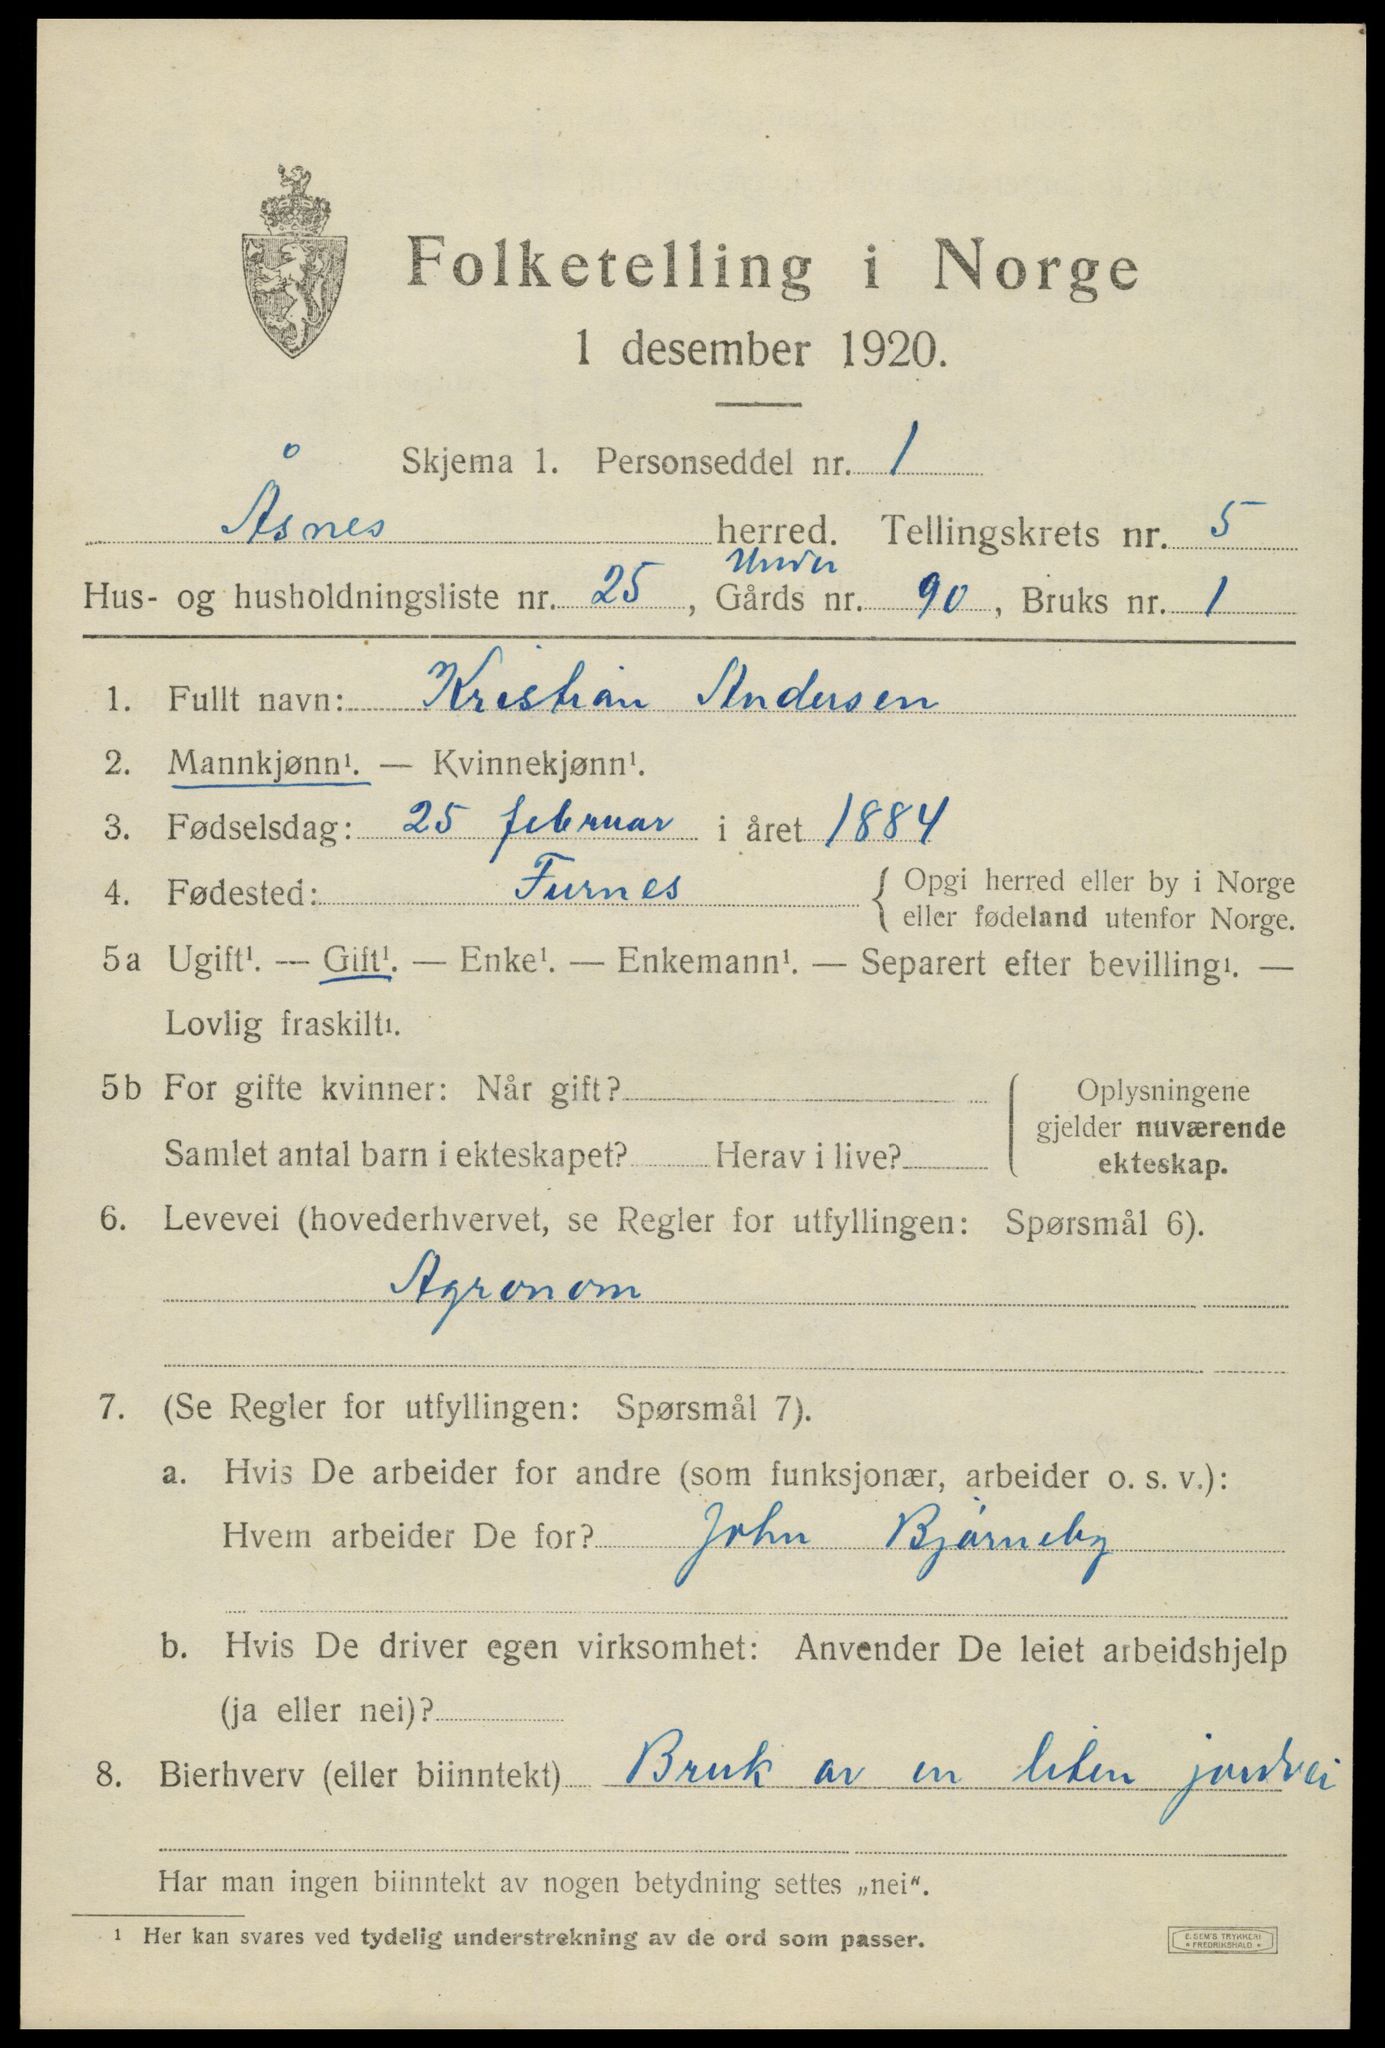 Folketelling i Norge
1 desember 1920.
Skjema 1. Personseddel nr. 1
Åsnes herred. Tellingskrets nr. 5
Under
Hus- og husholdningsliste nr. 25, Gårds nr. 90, Bruks nr. 1
1. Fullt navn: Kristian Andersen
2. Mannkjønn¹. — Kvinnekjønn¹.
3. Fødselsdag: 25 februar i året 1884
4. Fødested: Furnes { Opgi herred eller by i Norge
eller fødeland utenfor Norge.
5a Ugift¹. — Gift¹. — Enke¹. — Enkemann¹. — Separert efter bevilling¹. —
Lovlig fraskilt¹.
5b For gifte kvinner: Når gift?
Samlet antal barn i ekteskapet? Herav i live?
Oplysningene
gjelder nuværende
ekteskap.
6. Levevei (hovederhvervet, se Regler for utfyllingen: Spørsmål 6).
Agronom
7. (Se Regler for utfyllingen: Spørsmål 7).
a. Hvis De arbeider for andre (som funksjonær, arbeider o. s. v.):
Hvem arbeider De for? John Bjørneby
b. Hvis De driver egen virksomhet: Anvender De leiet arbeidshjelp
(ja eller nei)?
8. Bierhverv (eller biinntekt) Bruk av en liten jordvei
Har man ingen biinntekt av nogen betydning settes „nei".
¹ Her kan svares ved tydelig understrekning av de ord som passer.
E. SEM'S TRYKKERI
• FREDRIKSHALD •